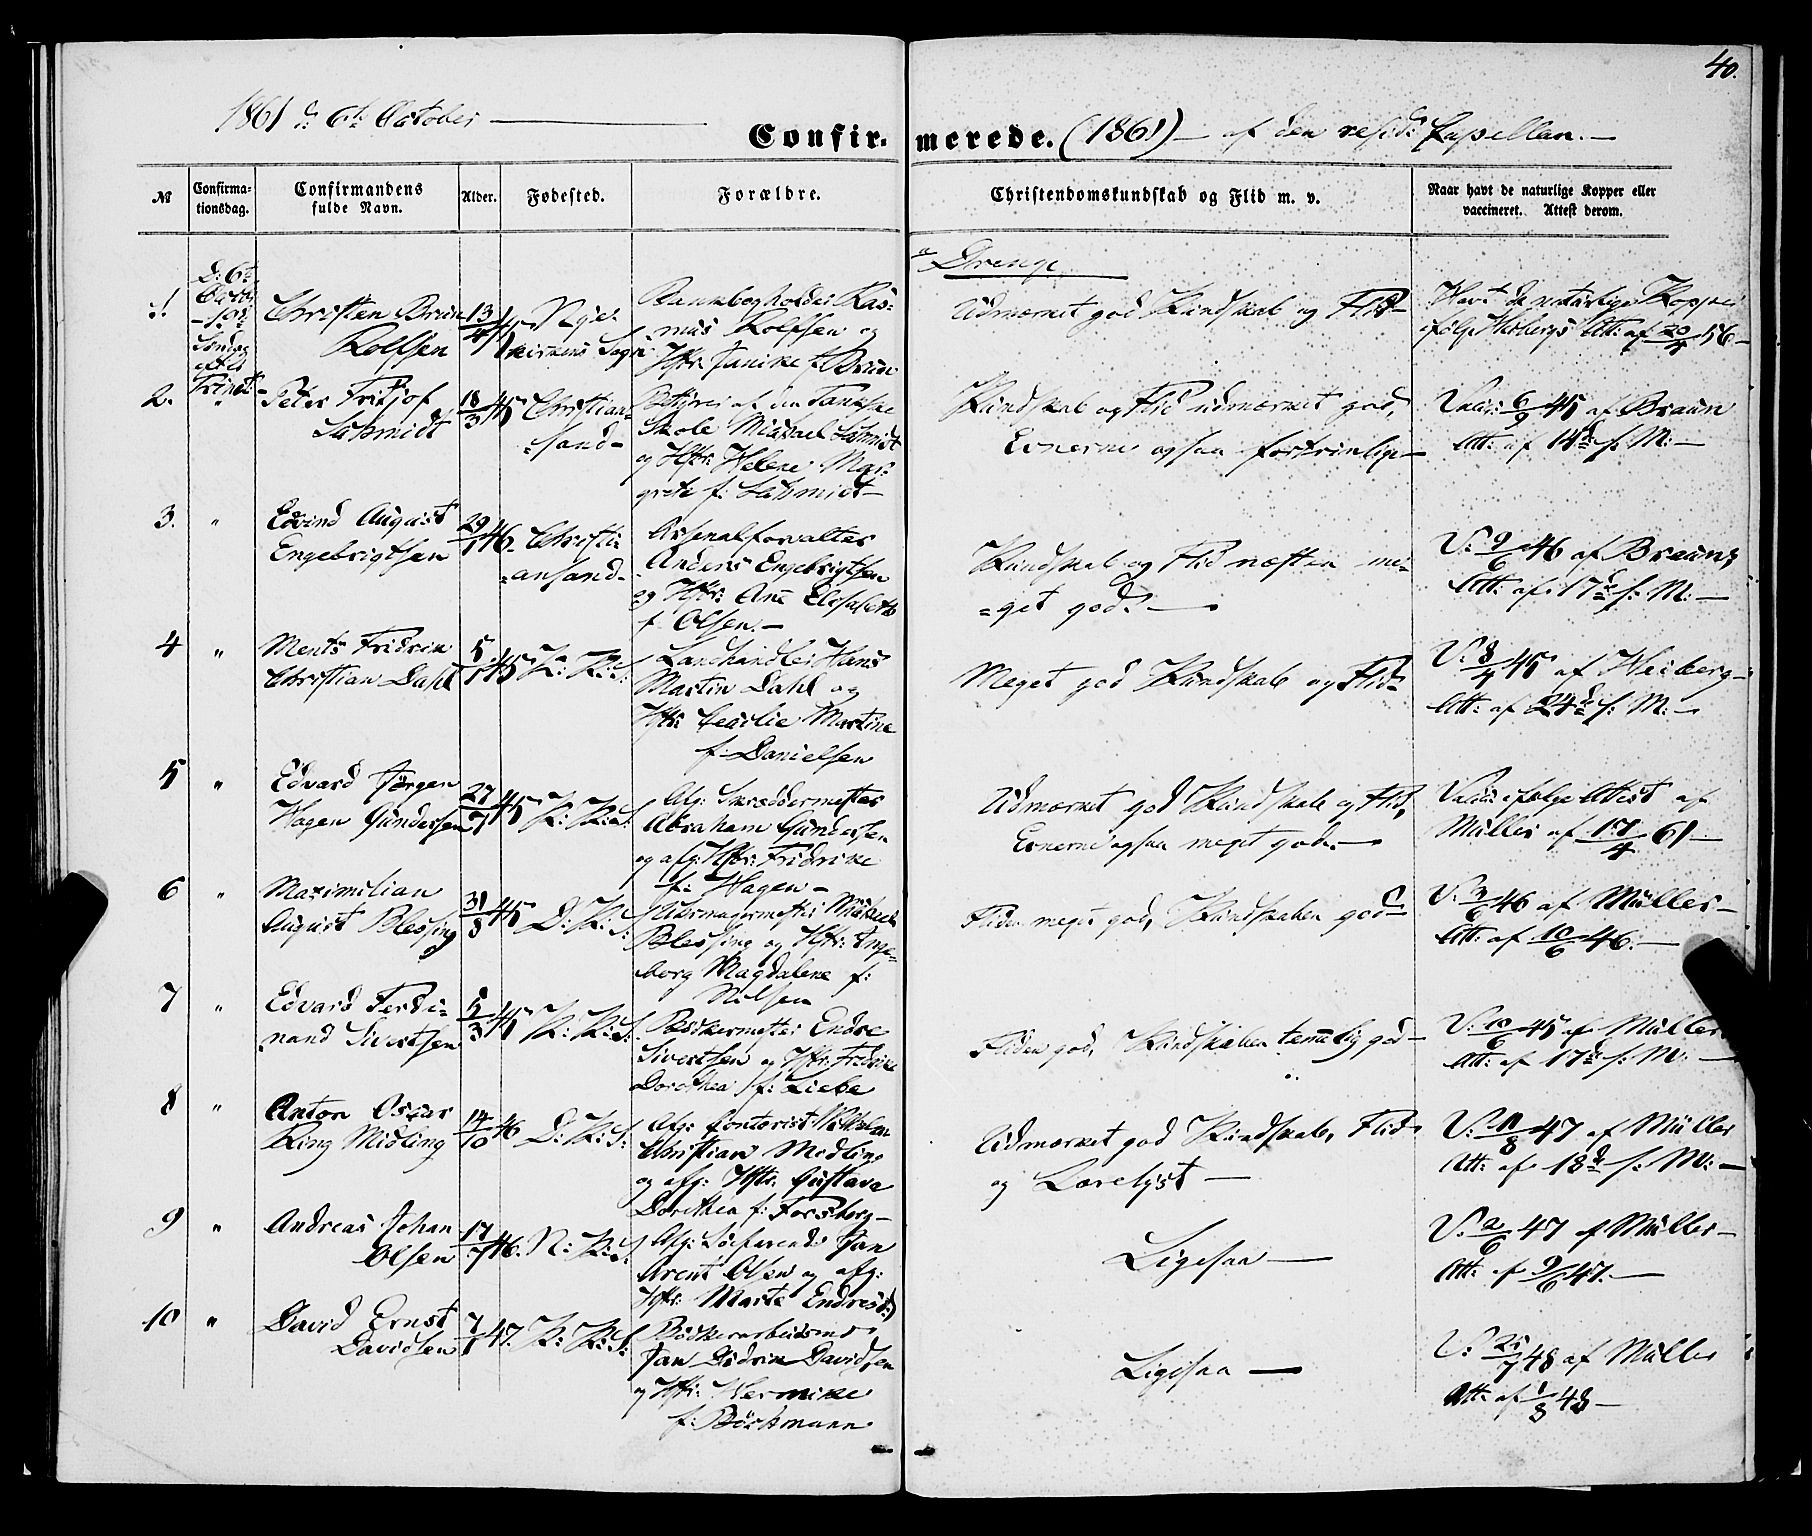 40.
1861 d: 6te October
Confir- merede. (1861) — af den resid: Capellan. —
№
Confirma-
tionsdag.
Confirmandens
fulde Navn.
Alder.
Fødested.
Forældre.
Christendomskundskab og Flid m. v.
Naar havt de naturlige Kopper eller
vaccineret. Attest derom.
Drenge
1. D: 6te
Octbr
Søndag
efter
Trinit:
Christen Bruun
Rolfsen
13/4 45
Nye
Kirkens Sogn
Bankbogholder Ras-
mus Rolfsen og
Hstr: Janike f. Bruun
Udmærket god Kundskab og Flid –
Havt de naturlige Kopper
ifølge Heibergs Att: af 20/4 56 –
2. "
Peter Fritjof
Schmidt
18/3 45
Christian-
sand –
Bestyrer af den Tankske
Skole Michael Schmidt
og Hstr: Helene Mar-
grete f: Schmidt –
Kundskab og Flid udmærket god,
Evnerne ogsaa fortrinlige –
Vacc: 6/9 45 af Braun
Att: af 14de s: M: –
3. "
Edvind August
Engebrigtsen
29/1 46
Christi-
ansand –
Arsenalforvalter
Anders Engebrigtsen
og Hstr: Ane Elisabeth
f. Olsen. –
Kundskab og Flid næsten me-
get god. –
V: 9/6 46 af Brauns
Att: af 17de s: M: –
4 "
Ments Fredrik
Christian Dahl
5/1 45
K: K: S:
Landhandler Hans
Martin Dahl og
Hstr: Cecilie Martine
f: Danielsen
Meget god Kundskab og Flid –
V: 8/4 45 af Heiberg –
Att: af 24de s: M: –
5 "
Edvard Jørgen
Hagen Gundersen
27/7 45
K: K: S:
Afg: Skræddermester
Abraham Gundersen
og afg: Hstr: Fredrike
f: Hagen –
Udmærket god Kundskab og Flid,
Evnerne ogsaa meget gode. –
Vacc: ifølge Attest af
Müller af 17/4 61 –
6 "
Maximilian
August Blessing
31/8 45
D: K: S:
Uhrmagermester Michael
Blessing og Hstr: Inge-
borg Magdalene f:
Nilsen
Fliden meget god, Kundskaben god –
V: 3/6 46 af Müller –
Att: af 10/6 46. –
7 "
Edvard Ferdi-
nand Sivertsen
5/3 45
K: K: S:
Bødkermester Endre
Sivertsen og Hstr: Fredrike
Dorothea f: Liebe
Fliden god, Kundskaben temmelig god –
V: 10/6 45 af Müller
Att: af 17de s: M: –
8 "
Anton Oscar
Ring Midling
14/10 46
D: K: S:
Afg: Contorist Wilhelm
Christian Midling
og afg: Hstr: Gustava
Dorothea f: Forsberg –
Udmærket god Kundskab, Flid
og Lærelyst –
V: 11/8 47 af Müller
Att: af 18de s: M: –
9 "
Andreas Johan
Olsen
17/7 46.
N: K: S.
Afg: Søfarende Jan
Arent Olsen og afg:
Hstr: Marte Endresd:
Ligesaa –
V: 2/6 47 af Müller –
Att: af 9/6 47. –
10 "
David Ernst
Davidsen
7/1 47.
K: K: S:
Bødkerarbeidsmd
Jan Didrik Davidsen
og Hstr: Hermine
f: Böckmann
Ligesaa –
V: 25/7 48 af Müller
Att: af 1/8 48 –